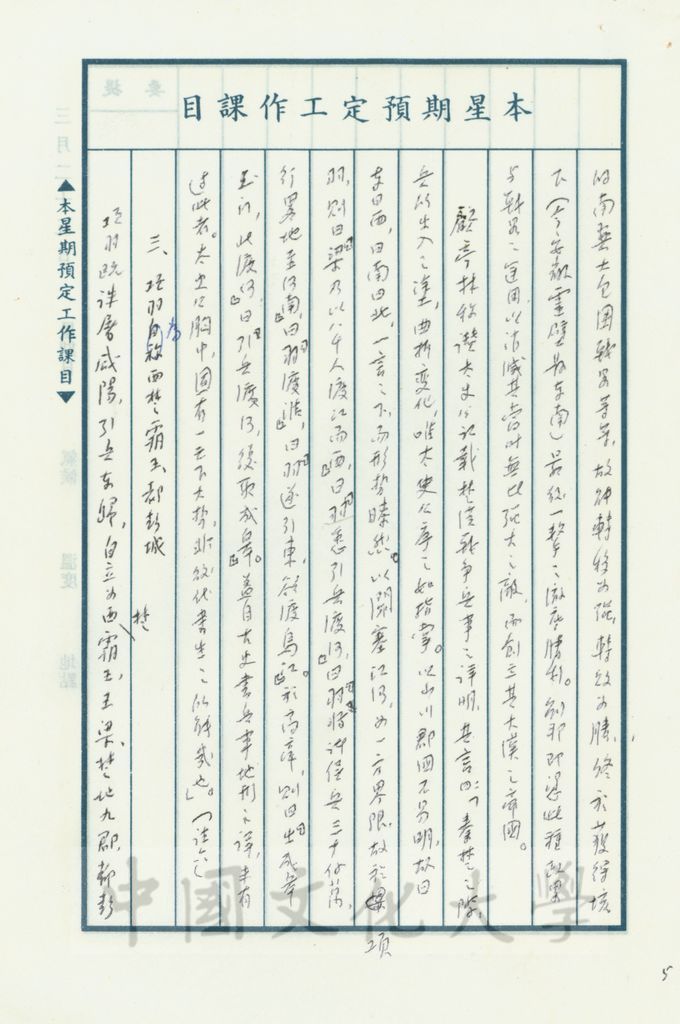 本星期預定工作課目
的南無大包圍戰略等等，故能轉移為攻，轉敗為勝，終於獲得垓
下（今安徽靈壁縣東南）最後一擊之徹底勝利。劉邦即憑此種配
與韓略之運用，以消滅其當時無比強大之敵，而創立其大漢之帝國。
顧亭林稱讚太史公記載楚漢戰爭兵事之詳明，其言曰：「秦楚之際，
兵所出入之塗，曲折變化，唯太史公序之如指掌。以山川郡國不易明，故曰
東曰西，曰南曰北，一言之下，而形勢瞭然。以關塞江河，為一方界限，故於項
羽，則曰『梁乃以八千人渡江而西』，曰『羽悉引兵渡河』，曰『羽將諸侯兵三十餘萬，
行略地至河南』，曰『羽渡淮』，曰『羽遂引東，欲渡烏江』。於高帝，則曰『出成皋
玉門，北渡河』，曰『引兵渡河，復取成皋』。蓋自古史書兵事地形之詳，未有
過此者。太史公胸中，固有一天下大勢，非後代書生之所能幾也。」
三、項羽自稱為西楚霸王，都彭城
項羽既誅屠咸陽，引兵東歸，自立為西楚霸王，王梁、楚地九郡，都彭
▲本星期預定工作課目▼
要提
三月二
氣候 溫度 地點
中國文化大學
5